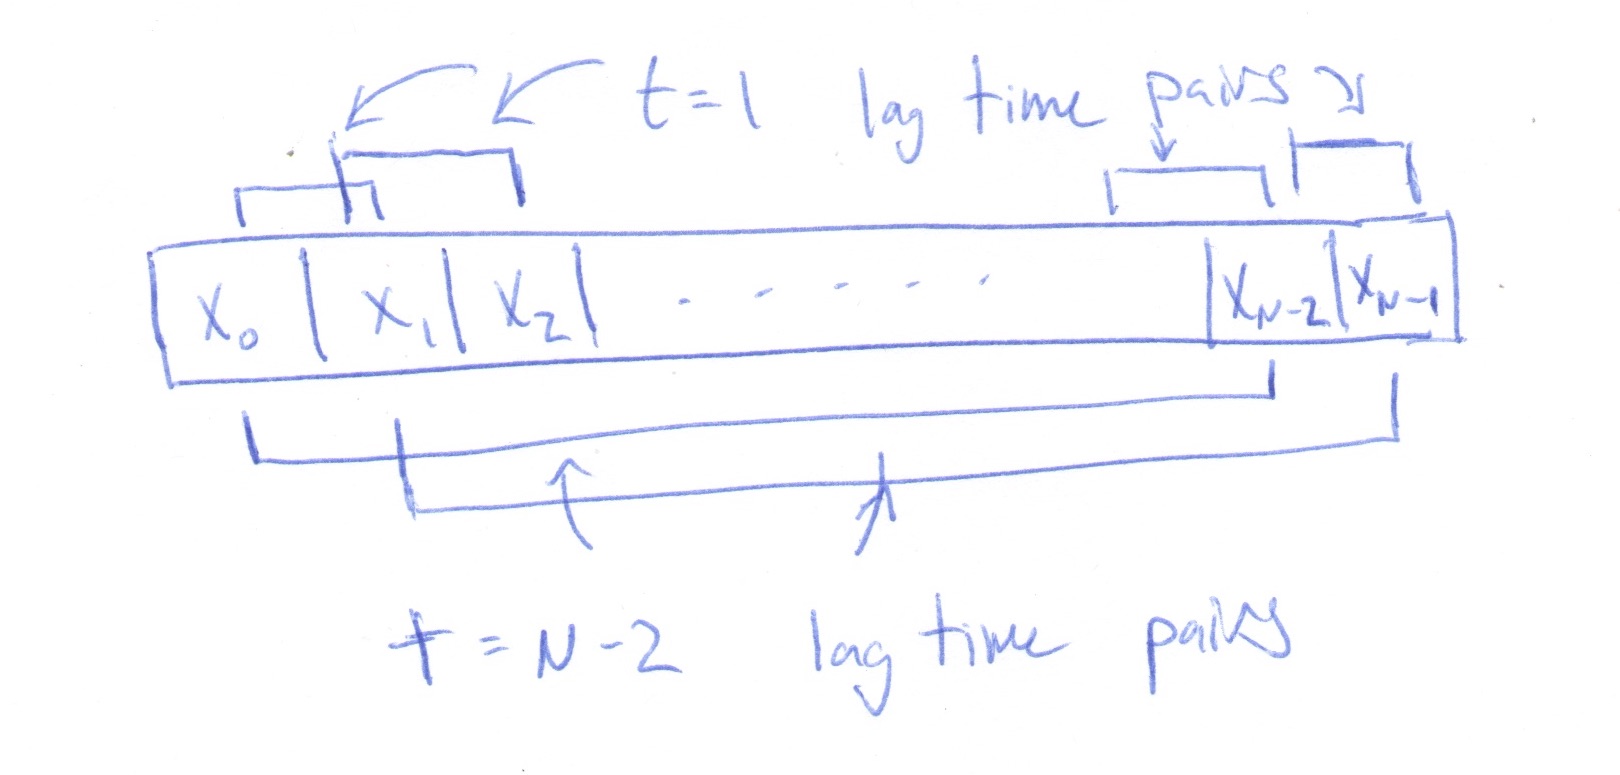 t=1 lag time pairs
x₀ x₁ x₂ . . . . . xN-2 xN-1
t=N-2 lag time pairs